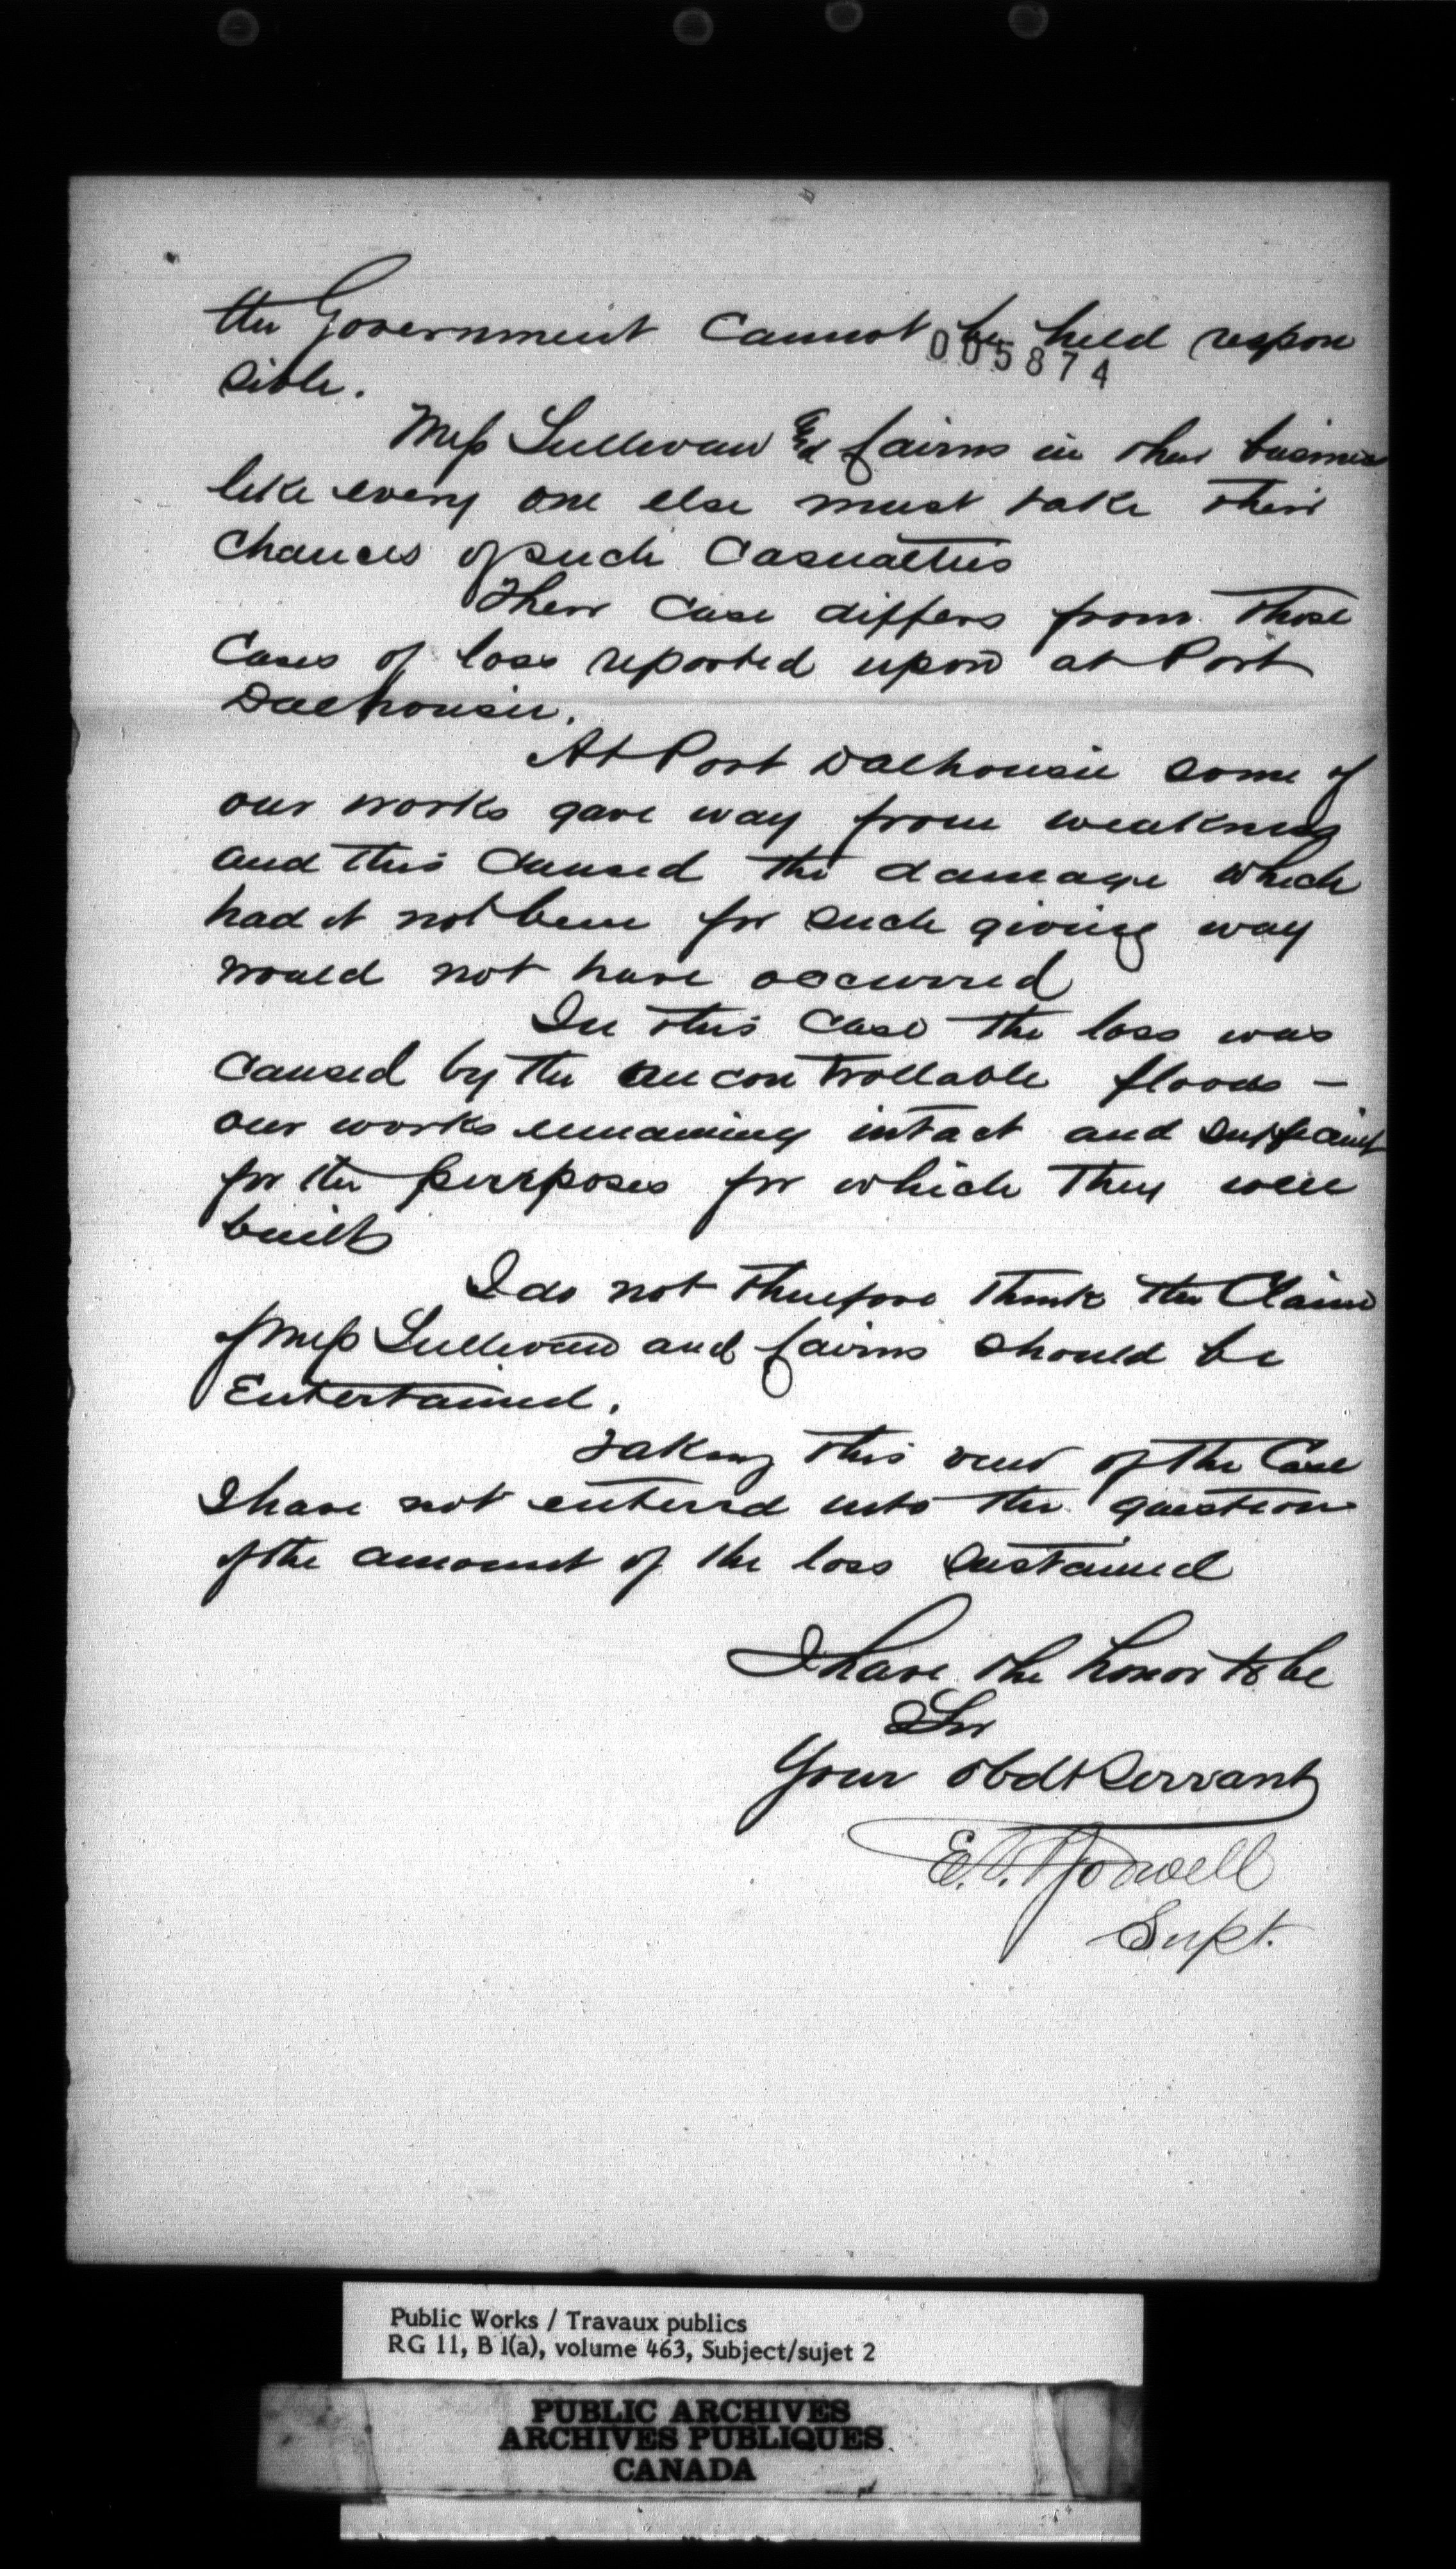 the Government Cannot be held respon
005874
sible.
Mess Sullivan and Cairns in their business
like every one else must take their
Chances of such Casualties
Their Case differs from those
Cases of loss reported upon at Port
Dalhousie.
At Port Dalhousie some of
our works gave way from weakness
and this Caused the damage which
had it not been for such giving way
would not have occurred
In this Case the loss was
Caused by the uncontrollable floods –
our works remaining intact and sufficient
for the purposes for which they were
built
I do not therefore think the Claim
of Mess Sullivan and Cairns should be
Entertained.
Taking this view of the Case
I have not entered into the question
of the amount of the loss sustained
I have the honor to be
Sir
Your obdt Servant
E.
Supt.
Public Works / Travaux publics
RG 11, B 1(a), volume 463, Subject/sujet 2
PUBLIC ARCHIVES
ARCHIVES PUBLIQUES
CANADA